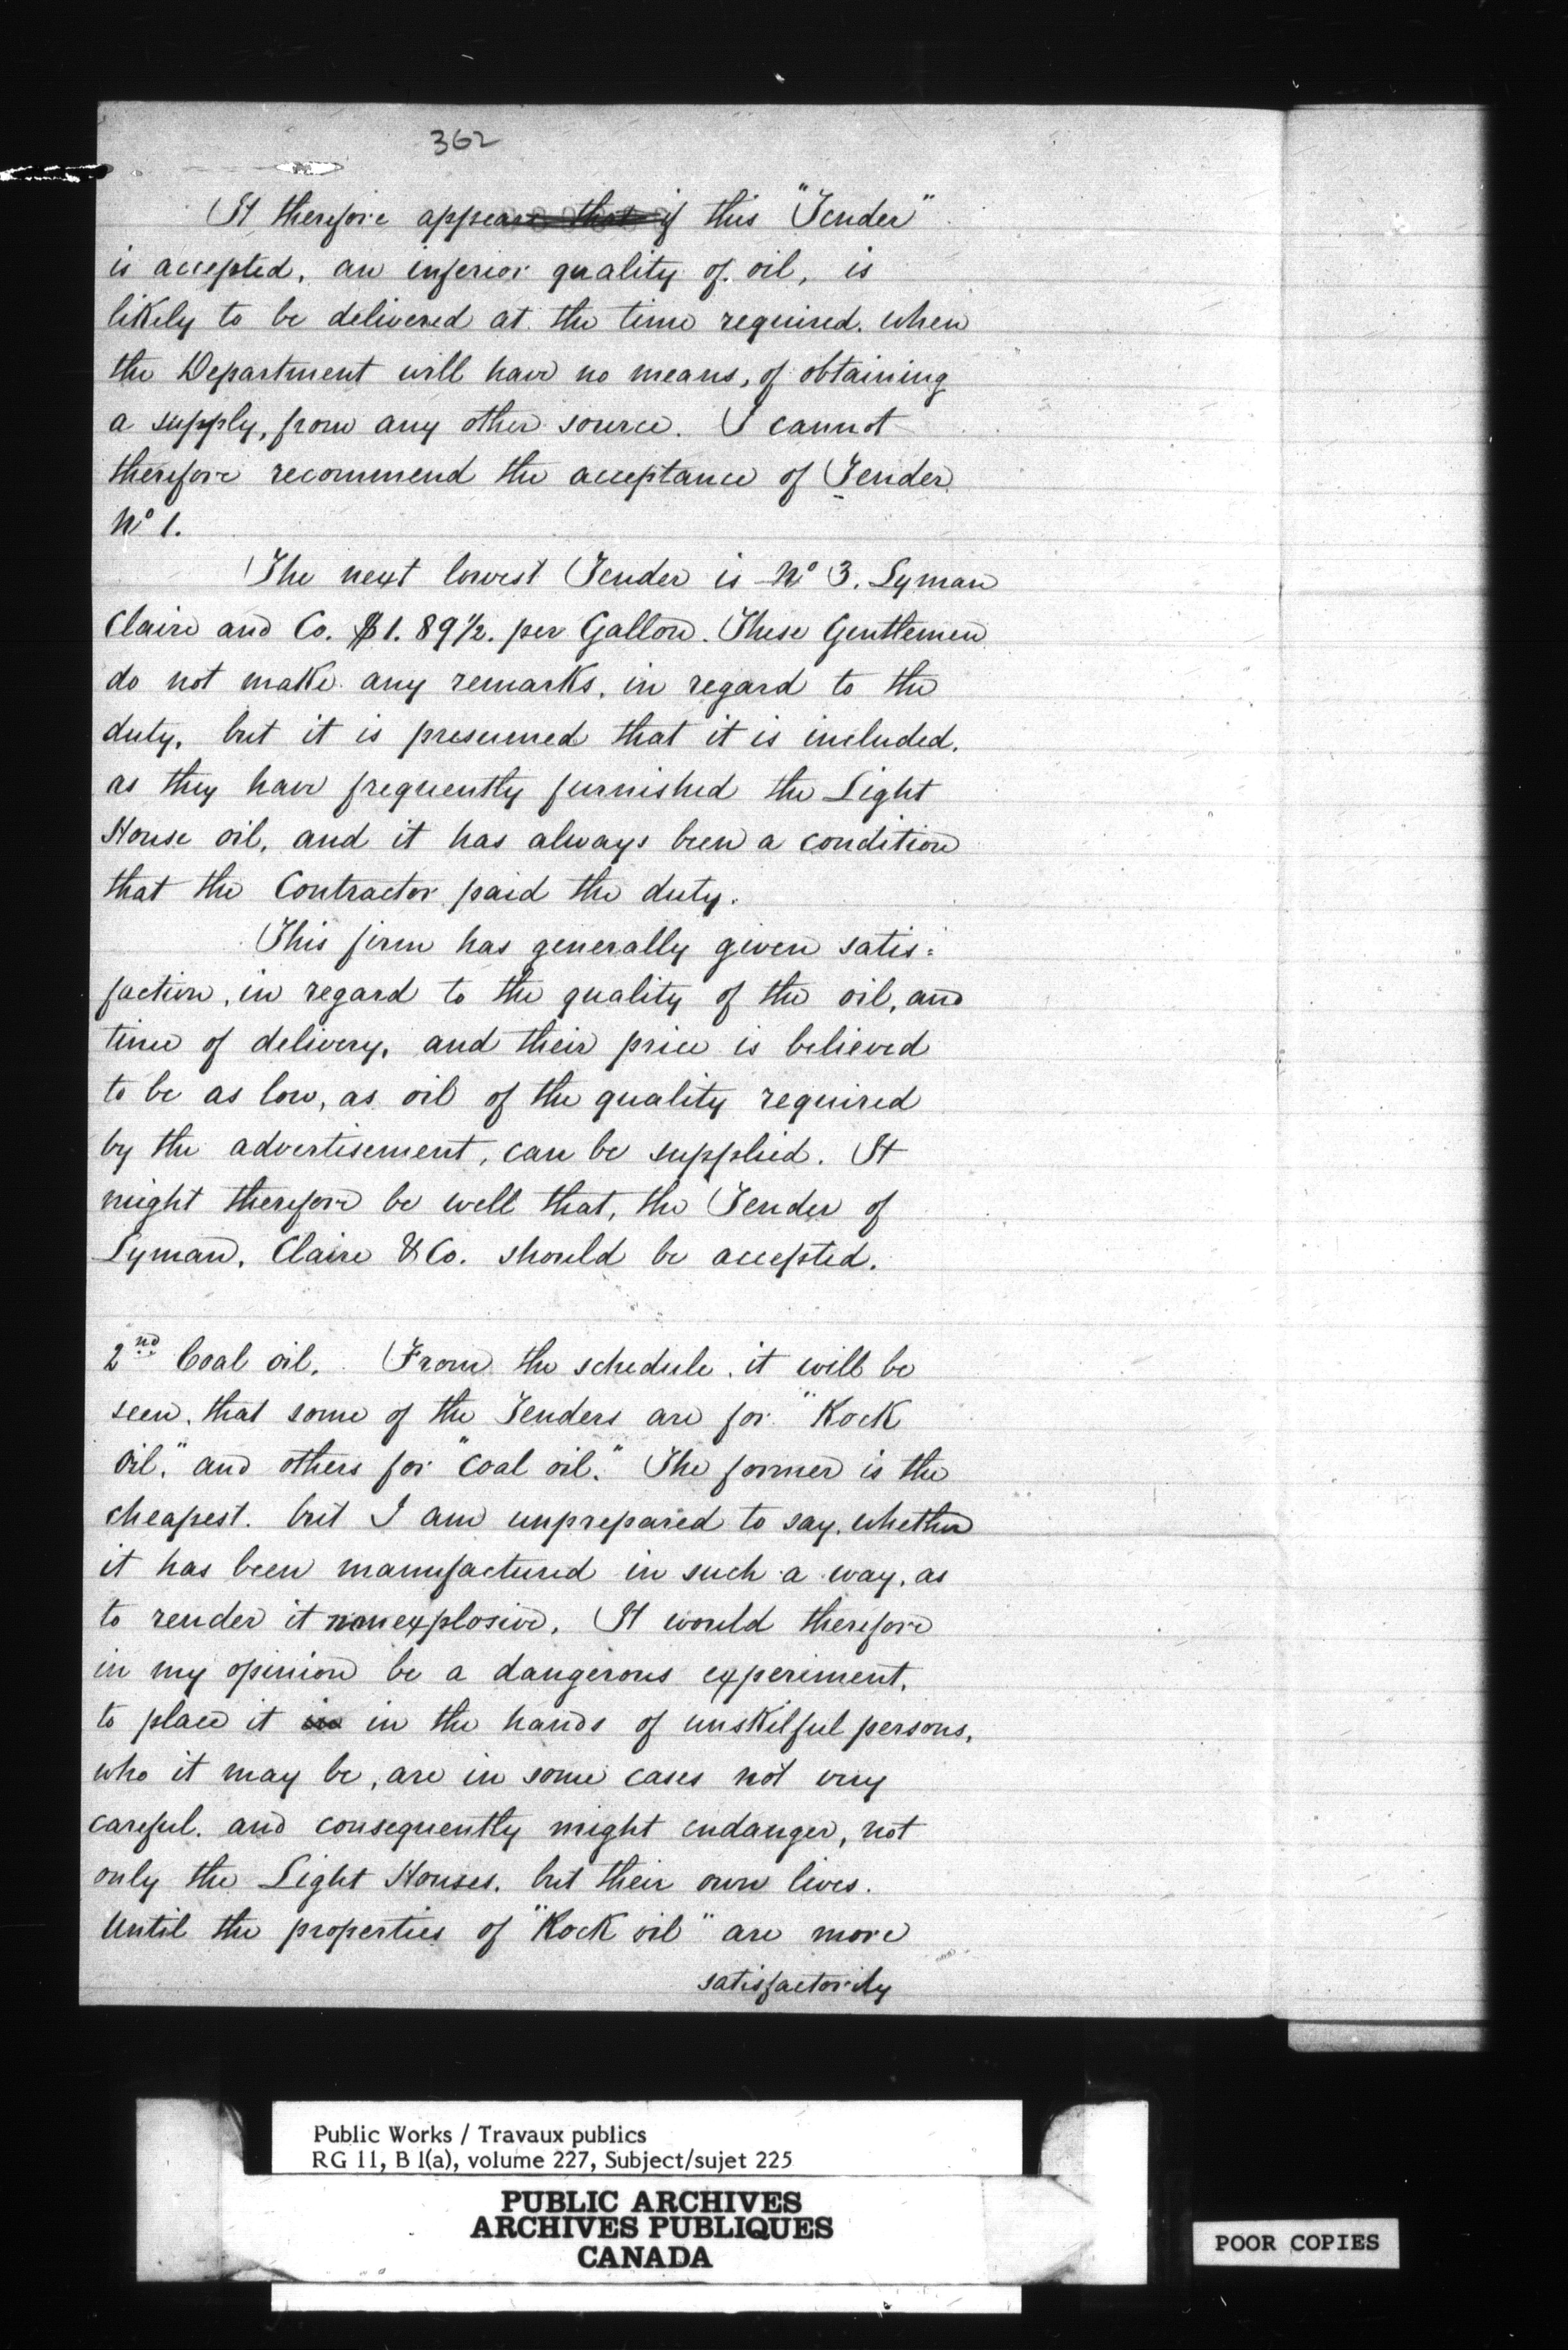 362
It therefore appears that if this "Tender"
is accepted, an inferior quality of oil, is
likely to be delivered at the time required. when
the Department will have no means, of obtaining
a supply, from any other source. I cannot
therefore recommend the acceptance of Tender
No 1.
The next lowest Tender is No 3. Lyman
Claire and Co. $1.89½. per Gallon. These Gentlemen
do not make any remarks, in regard to the
duty, but it is presumed that it is included,
as they have frequently furnished the Light
House oil, and it has always been a condition
that the Contractor paid the duty.
This firm has generally given satis:
faction, in regard to the quality of the oil, and
time of delivery, and their price is believed
to be as low, as oil of the quality required
by the advertisement, can be supplied. It
might therefore be well that, the Tender of
Lyman, Claire & Co. should be accepted.
2nd Coal oil. From the schedule, it will be
seen, that some of the Tenders are for "Rock
Oil," and others for "Coal oil." The former is the
cheapest. but I am unprepared to say, whether
it has been manufactured in such a way, as
to render it nonexplosive. It would therefore
in my opinion be a dangerous experiment,
to place it in in the hands of unskilful persons,
who it may be, are in some cases not very
careful. and consequently might endanger, not
only the Light Houses, but their own lives.
Until the properties of "Rock oil" are more
satisfactorily
Public Works / Travaux publics
RG 11, B 1(a), volume 227, Subject/sujet 225
PUBLIC ARCHIVES
ARCHIVES PUBLIQUES
CANADA
POOR COPIES